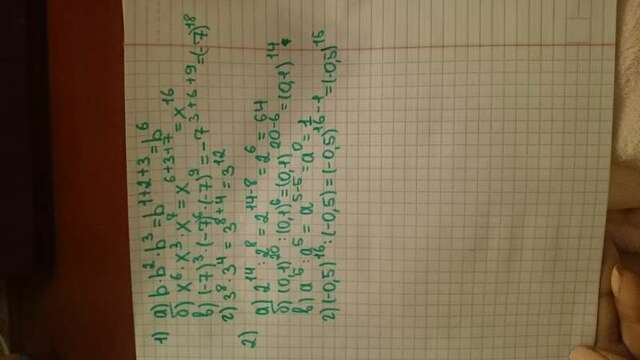 1) а) b·b²·b³=b¹⁺²⁺³=b⁶
б) x⁶·x³·x⁷=x⁶⁺³⁺⁷=x¹⁶
в) (-7)³·(-7)⁶·(-7)⁹=-7³⁺⁶⁺⁹=(-7)¹⁸
г) 3⁸·3⁴=3⁸⁺⁴=3¹²
2) а) 2¹⁴:2⁸=2¹⁴⁻⁸=2⁶=64
б) (0,1)²⁰:(0,1)⁶=(0,1)²⁰⁻⁶=(0,1)¹⁴
в) a⁵:a⁵=a⁵⁻⁵=a⁰=1
г) (-0,5)¹⁶:(-0,5)=(-0,5)¹⁶⁻¹=(-0,5)¹⁵